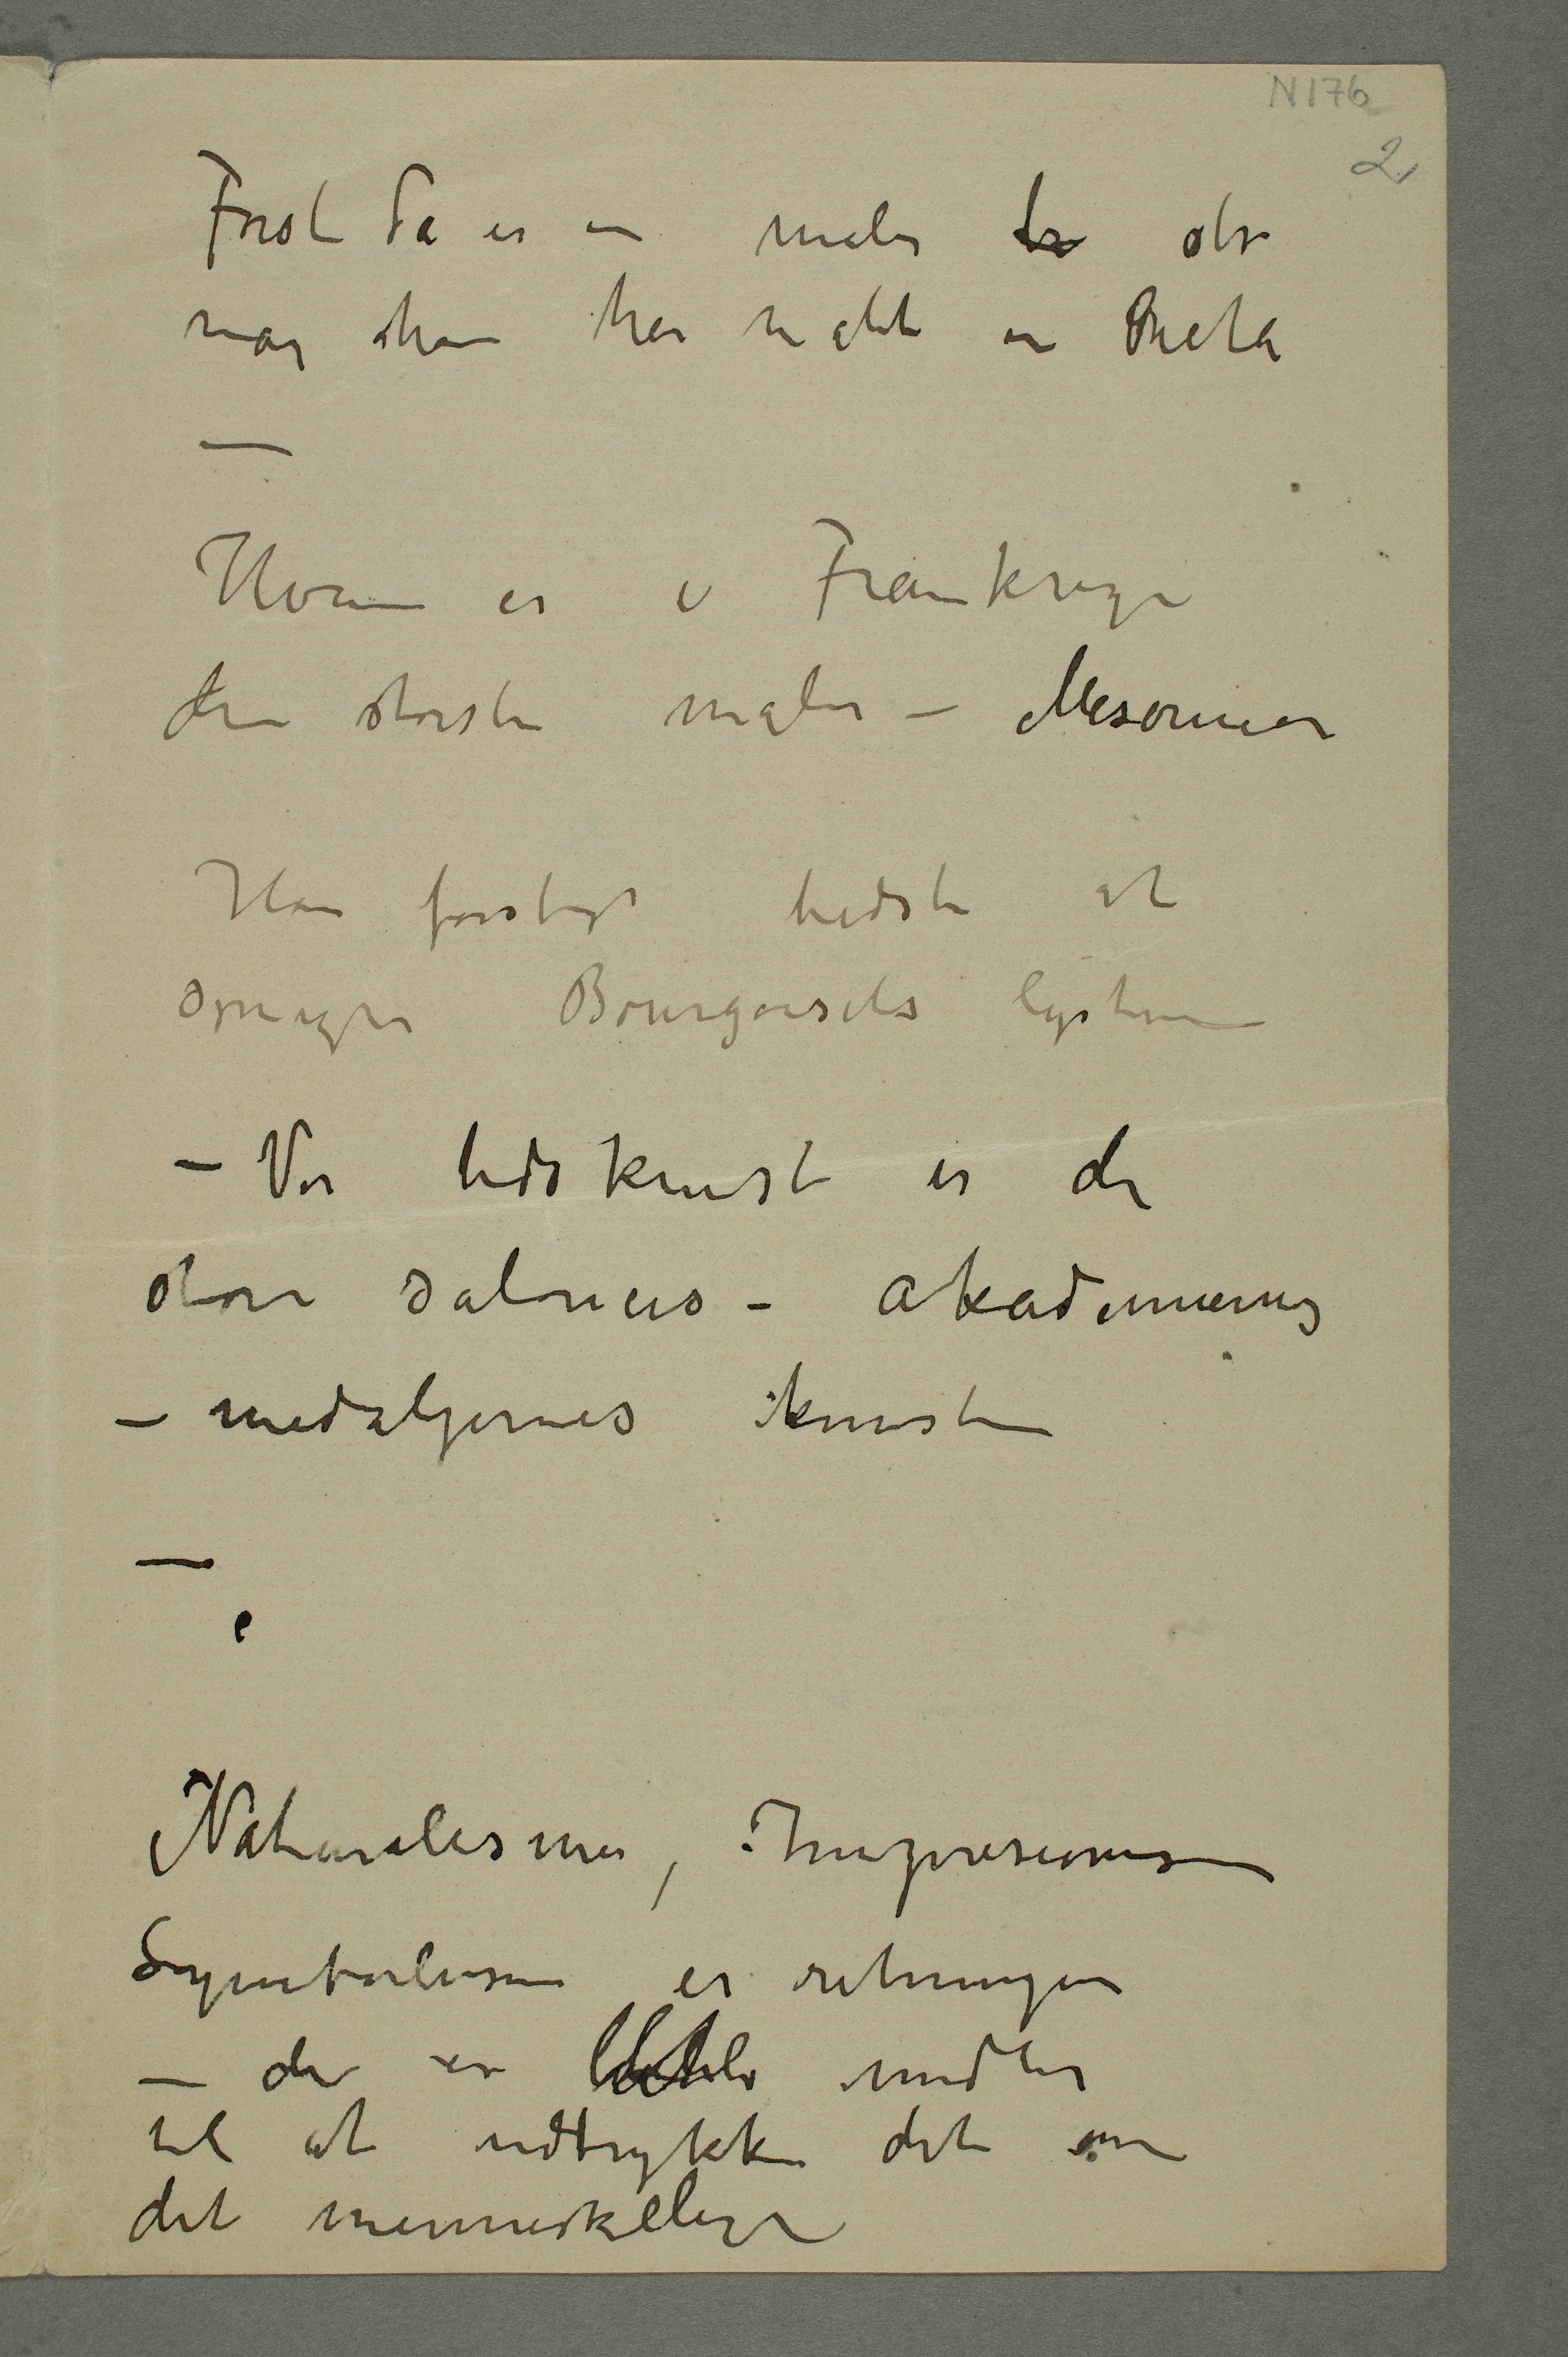 N 176
2
Først da er en maler stor
når han har malt en Pieta
—
Hvem er i Frankrige
den største maler – Mesonier
Han forstår bedst at
Bourgoisets lysten
– Vor tids kunst er de
store saloners – akademiernes
– medaljernes kunst
—
Naturalismen, Impresionism
Symbolismen er retningen
– der er midler
til at udtrykke det
det menneskelige